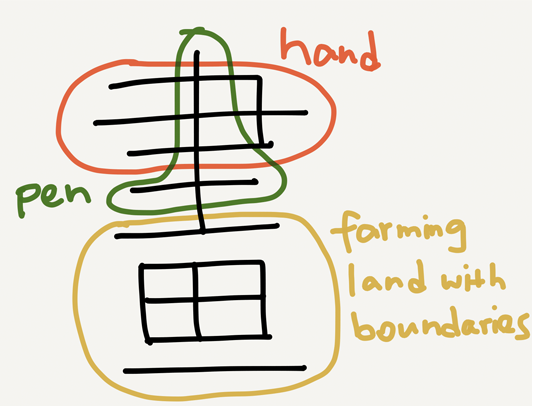 hand
畫
pen
farming
land with
boundaries